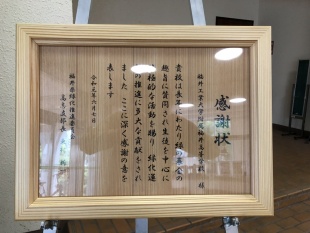 感謝状
福井工業大学附属福井高等学校 様
貴校は長年にわたり緑の募金の
趣旨に賛同され生徒を中心に
積極的な活動を賜り緑化運
動の推進に多大な貢献をされ
ました ここに深く感謝の意を
表します
令和元年六月七日
福井県緑化推進委員会